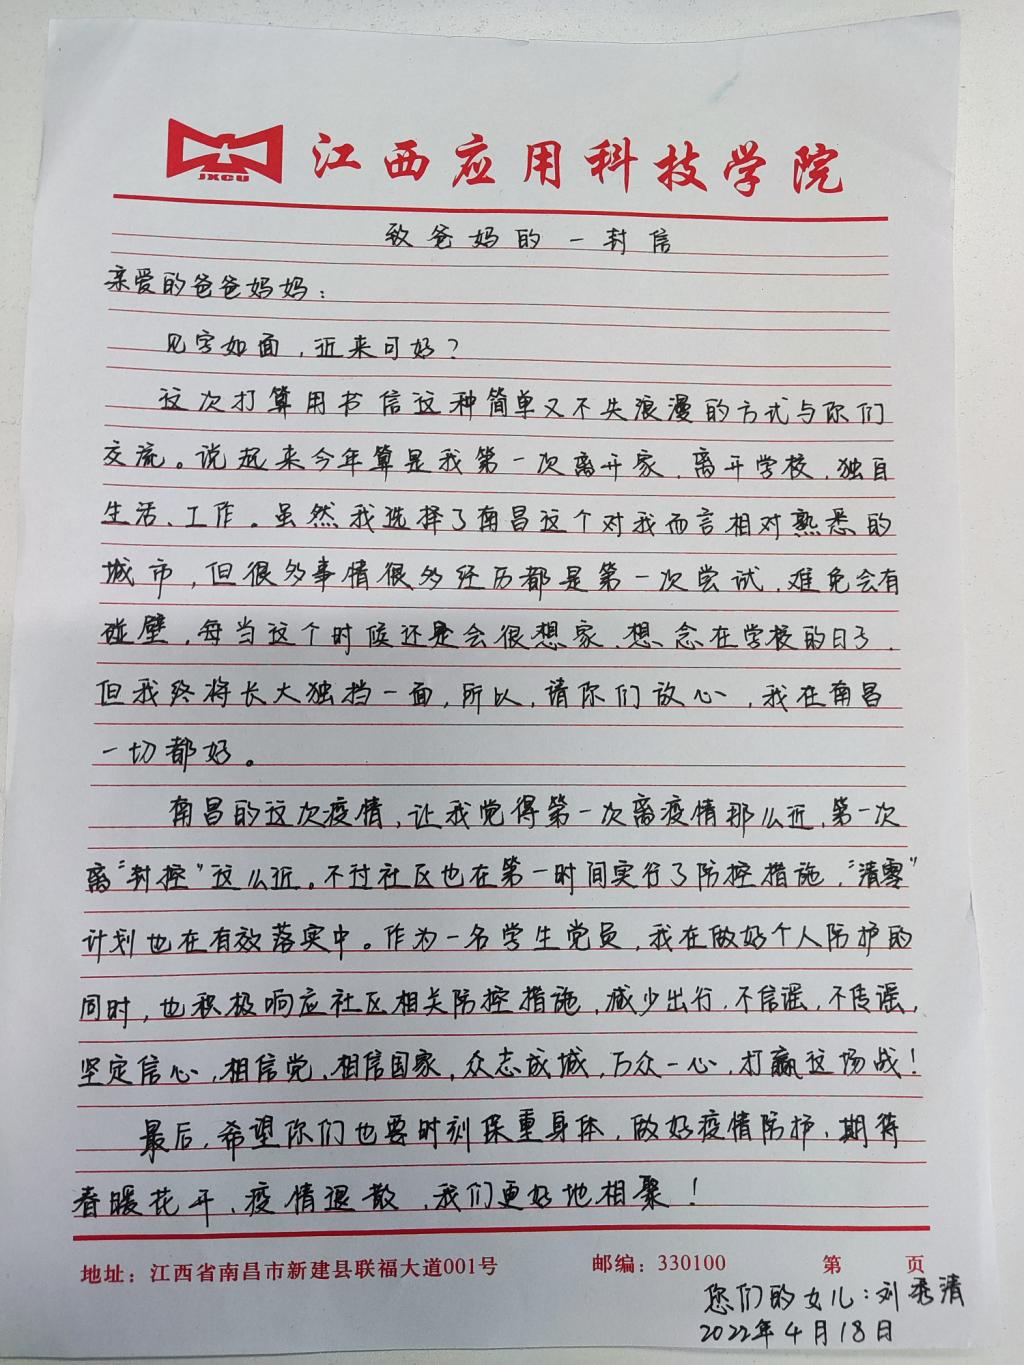 JXCU
江西应用科技学院
致爸妈的一封信
亲爱的爸爸妈妈：
见字如面，近来可好？
这次打算用书信这种简单又不失浪漫的方式与你们
交流。说起来今年算是我第一次离开家、离开学校，独自
生活、工作。虽然我选择了南昌这个对我而言相对熟悉的
城市，但很多事情很多经历都是第一次尝试，难免会有
碰壁，每当这个时候还是会很想家、想念在学校的日子，
但我终将长大独挡一面，所以，请你们放心，我在南昌
一切都好。
南昌的这次疫情，让我觉得第一次离疫情那么近，第一次
离“封控”这么近。不过社区也在第一时间实行了防控措施，“清零”
计划也在有效落实中。作为一名学生党员，我在做好个人防护的
同时，也积极响应社区相关防控措施，减少出行，不信谣，不传谣，
坚定信心，相信党，相信国家，众志成城，万众一心，打赢这场战！
最后，希望你们也要时刻保重身体，做好疫情防护，期待
春暖花开，疫情退散，我们更好地相聚！
地址：江西省南昌市新建县联福大道001号 邮编：330100 第 页
您们的女儿：刘秀清
2022年4月18日